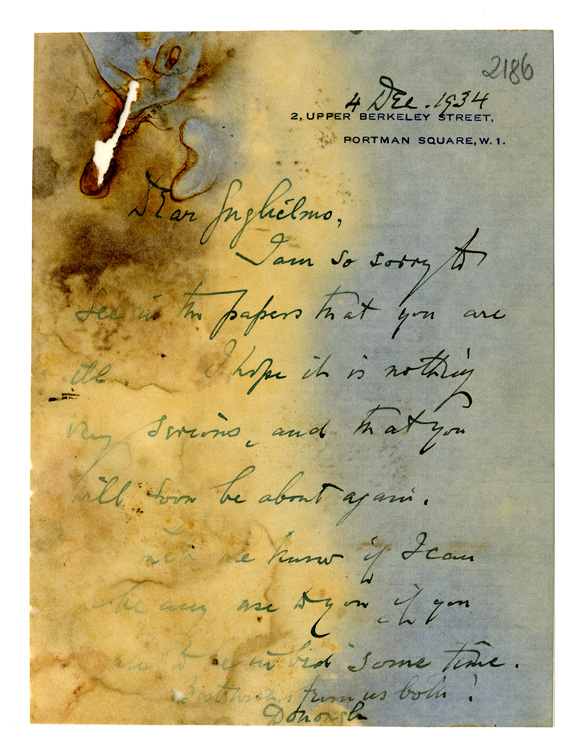 2186
4 Dec. 1934
2, UPPER BERKELEY STREET,
PORTMAN SQUARE, W. 1.
Dear Guglielmo,
I am so sorry to
see in the papers that you are
ill. I hope it is nothing
very serious, and that you
will soon be about again.
Let me know if I can
be any use to you, if you
are to be in bed some time.
Best wishes from us both!
Donough